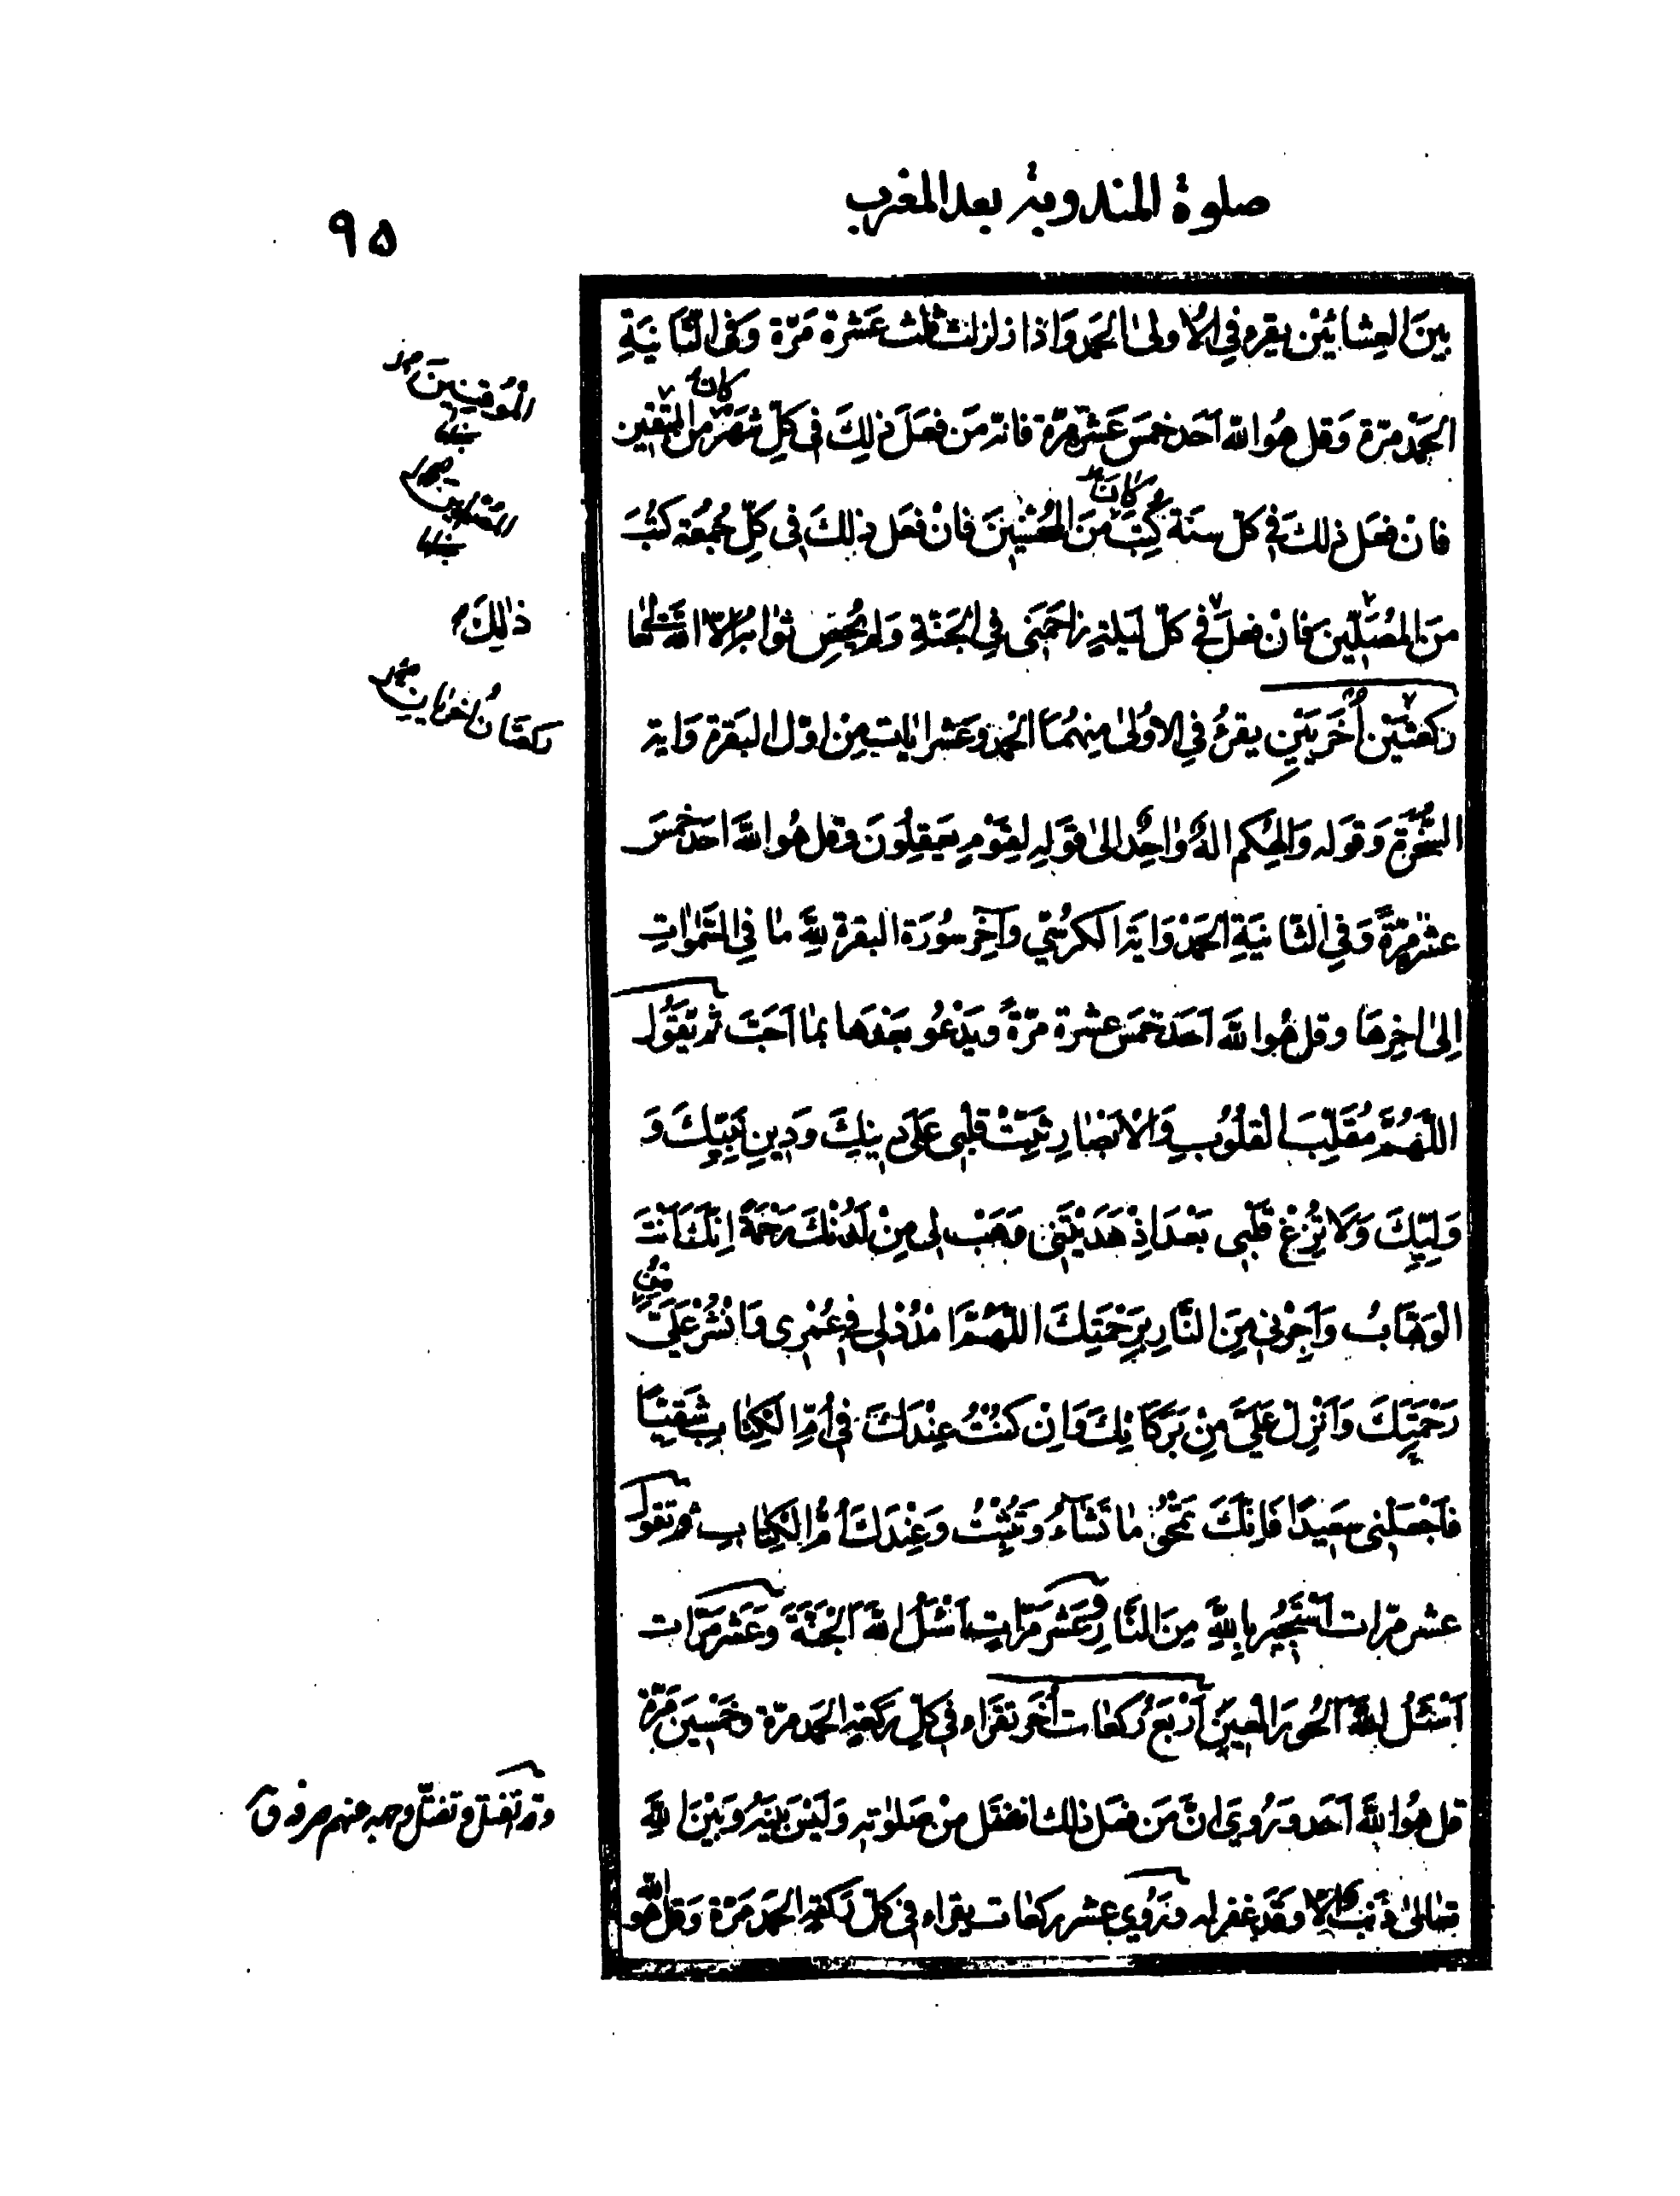 صلوة المندوبة بعد المغرب
٩۵
بَينَ العِشائَيْن يقرء فِي الاُولىٰ الحَمد وَاذا زلزلت ثلث عَشرة مَرّة وَفى الثّانيَةِ
الحَمْد مرّة وَقل هُوَ الله اَحَد خمسَ عَشرة مَرّة فانّه مَن فعَلَ ذٰلِكَ فى كلّ شهَر كانَ منَ المتّقين
فان فعَل ذٰلكَ فى كلّ سنَة كُتِبَ كانَ مِنَ المُحْسِنينَ فَانْ فعَل ذٰلكَ فى كلِّ جُمعَة كُتبَ
منَ المُصَلّينَ فَانْ فعلَ فى كلّ لَيلةٍ زاحَمَنى فِى الجَنّةِ وَلم يُحصِ ثوابَه الّا الله تعٰالى
رَكعتَيْن اُخرَيَيْنِ يقرءُ فِى الاوُلىٰ مِنهُمَا الحَمد وعَشر ايٰات مِن اوّل البَقرة وَاية
السّخرةِ وَقوله وَالٰهُكم الهٌ وٰاحِدٌ الىٰ قولِه لِقَوْمٍ يَعقِلُونَ وقل هو الله احَد خمسَ
عشرَ مرّةً وَفِى الثّانيَةِ الحَمْدَ وَاية الكرُسيّ وآخِر سُورَة البقرة لِلّٰهِ مٰا فِى السَّمٰواتِ
اِلىٰ اخِرهَا وقل هُوَ اللهُ اَحَد خمسَ عشرة مرّةً ويَدْعُو بَعْدَها بمٰا اَحَبَّ ثم يَقُول
اللّهُمَّ مُقَلِّبَ القلُوُبِ وَالْاَبصٰارِ ثبِّتْ قلبى عَلىٰ دينِكَ ودينِ نَبِيِّكَ وَ
وَلِيِّكَ وَلا تُزِغْ قَلْبى بَعْدَ اِذْ هَدَيْتَنى وَهَبْ لى مِنْ لَدُنْكَ رَحْمَةً اِنَّكَ اَنْتَ
الوَهّابُ وَاَجِرْنى مِنَ النّارِ بِرَحْمَتِكَ اللّهُمَّ امْدُدْ لى فى عُمْرى وَانْشُرْ عَلَيَّ مِنْ
رَحْمَتِكَ وَاَنْزِل عَلَيَّ مِنْ بَرَكاتِكَ وَاِن كُنْتُ عِنْدَكَ فى اُمِّ الكِتٰابِ شَقِيًّا
فَاجْعَلنى سَعيدًا فَاِنَّكَ تَمْحُو مٰا تَشٰاءُ وَتُثْبِتُ وَعِنْدَكَ اُمُّ الْكِتٰابِ ثم تقول
عشر مرّات اَسْتَجيرُ بِاللّهِ مِنَ النّارِ وَعَشر مَرّاتٍ اَسْئَلُ اللهَ الْجَنَّةَ وَعَشر مَرّات
اَسْئَلُ اللهَ الحُورَ العينَ اَرْبَعُ ركعٰات اُخَر تقرَاء فى كلّ ركعَةٍ الحَمد مرّة وخَمْسينَ مَرّة
قل هُوَ اللهُ اَحَد وَرُوِيَ انَّ مَن فعَل ذلك انفتَل مِنْ صَلوٰتِه وَليْسَ بَيْنَهُ وَبَيْنَ اللهِ
تعٰالىٰ ذَنبٌ الّا وقَدْ غفر له ورُوِي عشر ركعٰات يقراء فى كلّ ركعَةٍ الحَمد مَرّة وَقل هُو الله
المُوقِنينَ صح
ذٰلِكَ
ركعتَانُ اُخراوان